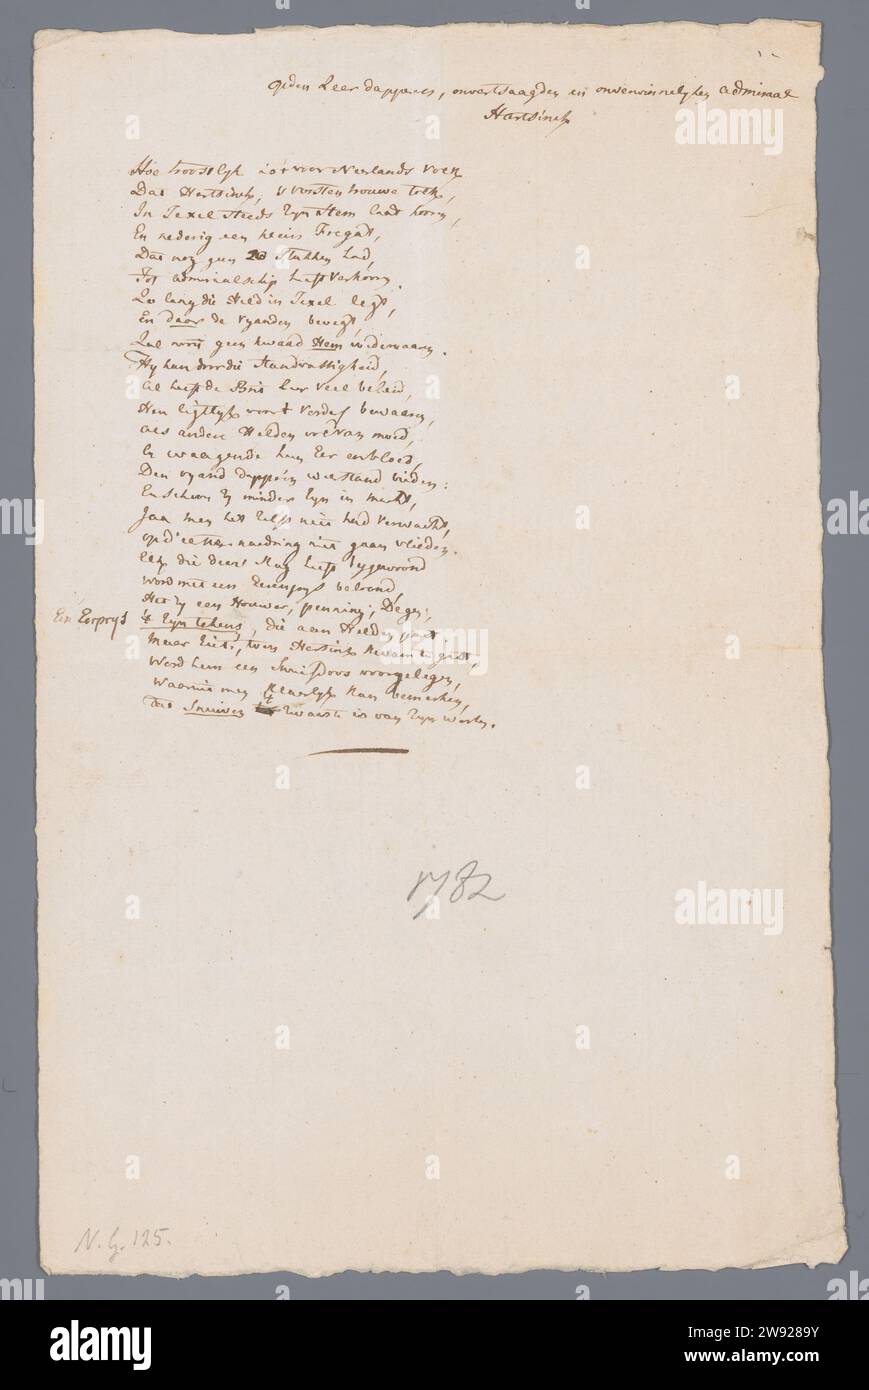 Op den zeer dapperen, onvertsaagden en onverwinnelyken admiraal
Hartsinck
Hoe troostlyk is 't voor Neerlands volk
Dat Hartsinck, 's Vorsten trouwe tolk,
In Texel steeds zyn stem laat hooren,
En nederig een klein Fregat,
Dat nog geen 20 stukken had,
Tot admiraalschip heeft verkooren.
Zo lang die Held in Texel legt,
En daar de vyanden bevegt,
Zal nooit geen kwaad Hem wedervaaren.
Hy kan door die standvastigheid,
Al heeft de Brit zeer veel beleid,
Hen ligtlyk voor 't verderf bewaaren,
Als andere Helden vol van moed,
En waagende hun Eer en bloed,
Den vyand dapper wederstand bieden:
En schoon zy minder zyn in macht,
Jaa men het zelfs niet had verwacht,
op d'eerste naedring niet gaan vlieden.
Elk die deez' slag heeft bygewoond
Word met een Eerenprys beloond,
Het zy een Houwer, penning, Degen,
Een Eerprys
't Zyn tekens, die aan Helden past.
Maar ziet, toen Hartsinck kwam te gast,
Werd hem een Snuifdoos voorgelegen,
Waaruit men klaarlyk kan bemerken,
dat Snuiven 't zwaarste is van zyn werken.
1782
N.G. 125.
alamy
Image ID: 2W9289Y
www.alamy.com